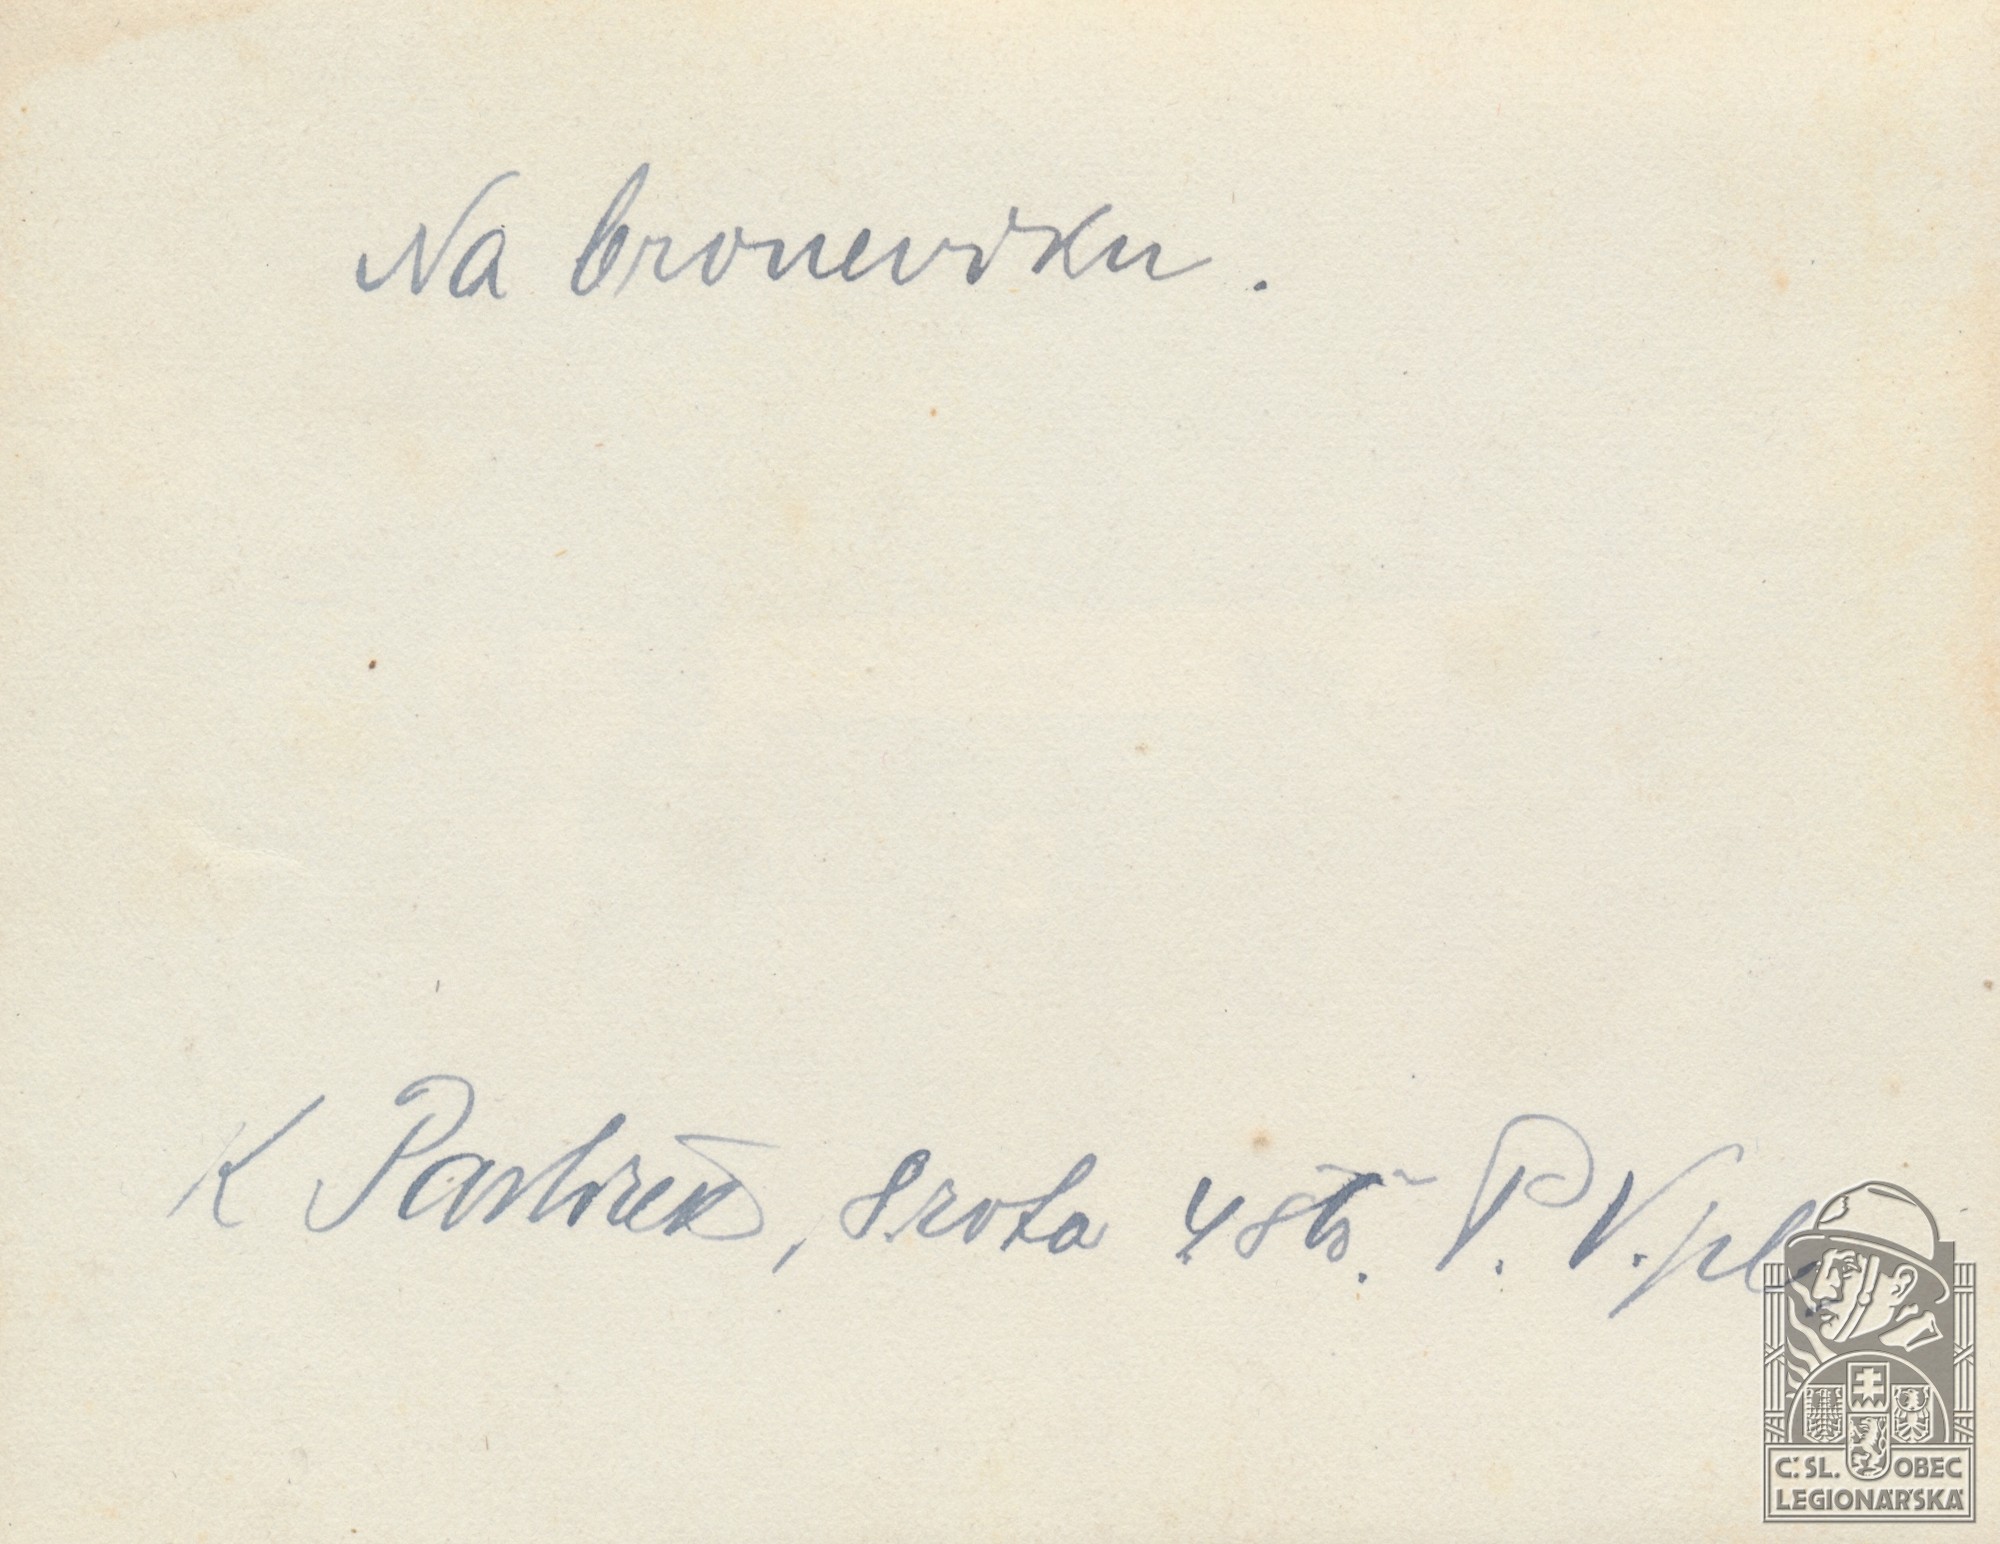 Na broneviku.
K Pavlíček, 8 rota 4 stř. P. V. pl.
Č.SL. OBEC
LEGIONÁŘSKÁ